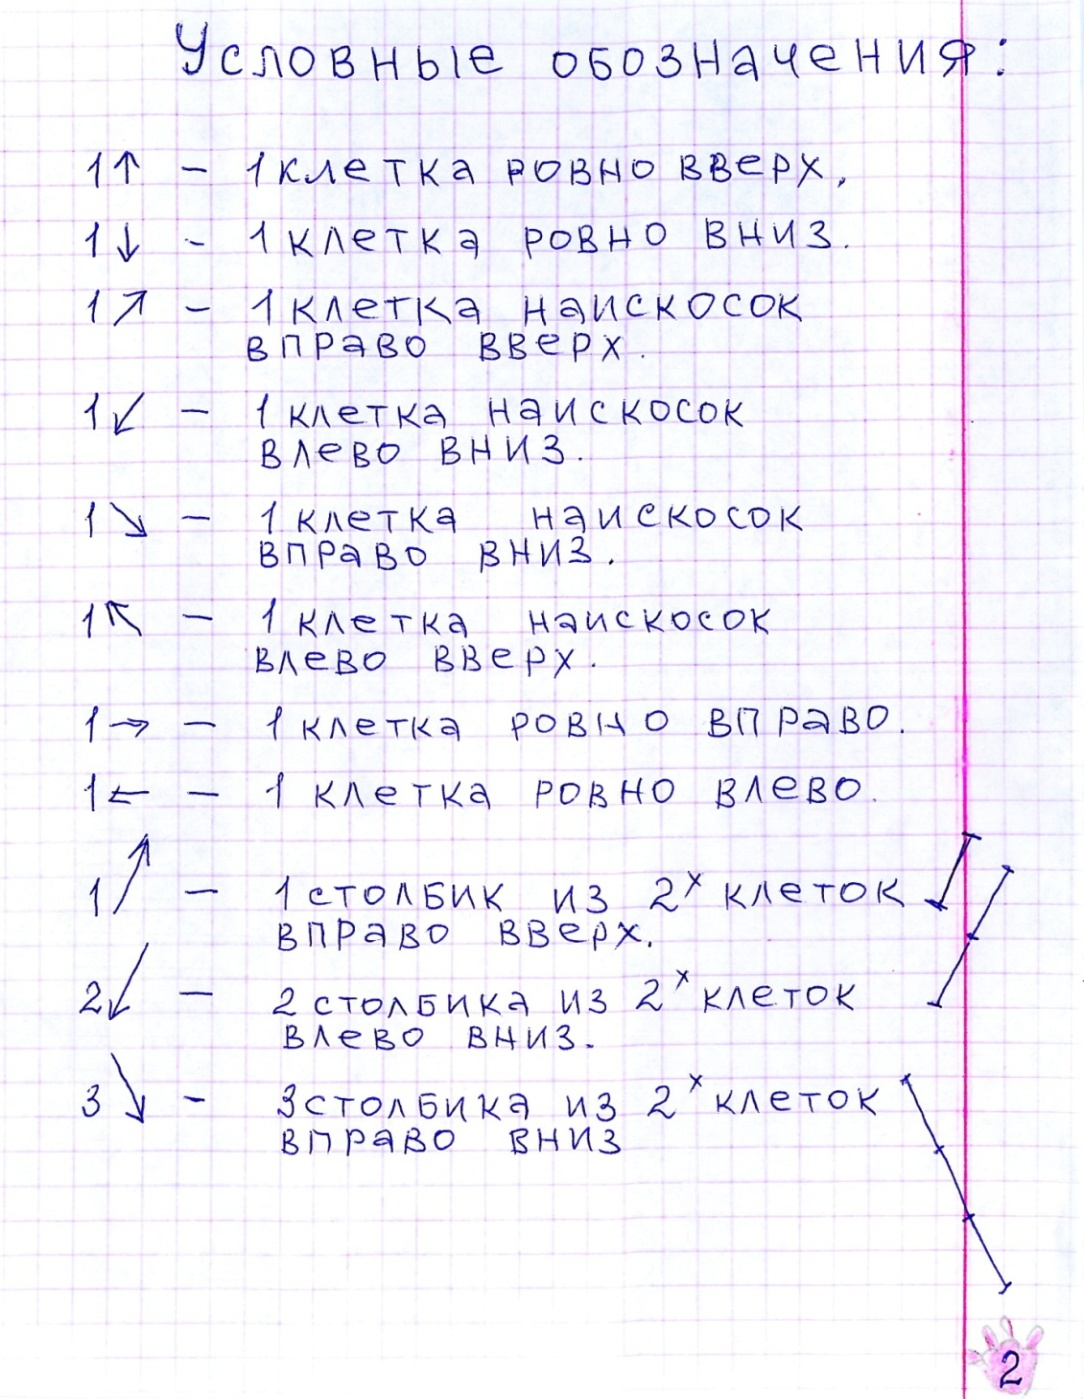 Условные обозначения:
1↑ – 1 клетка ровно вверх.
1↓ – 1 клетка ровно вниз.
1↗ – 1 клетка наискосок
вправо вверх.
1↙ – 1 клетка наискосок
влево вниз.
1↘ – 1 клетка наискосок
вправо вниз.
1↖ – 1 клетка наискосок
влево вверх.
1→ – 1 клетка ровно вправо.
1← – 1 клетка ровно влево.
1↗ – 1 столбик из 2х клеток
вправо вверх.
2↙ – 2 столбика из 2х клеток
влево вниз.
3↘ – 3 столбика из 2х клеток
вправо вниз
2